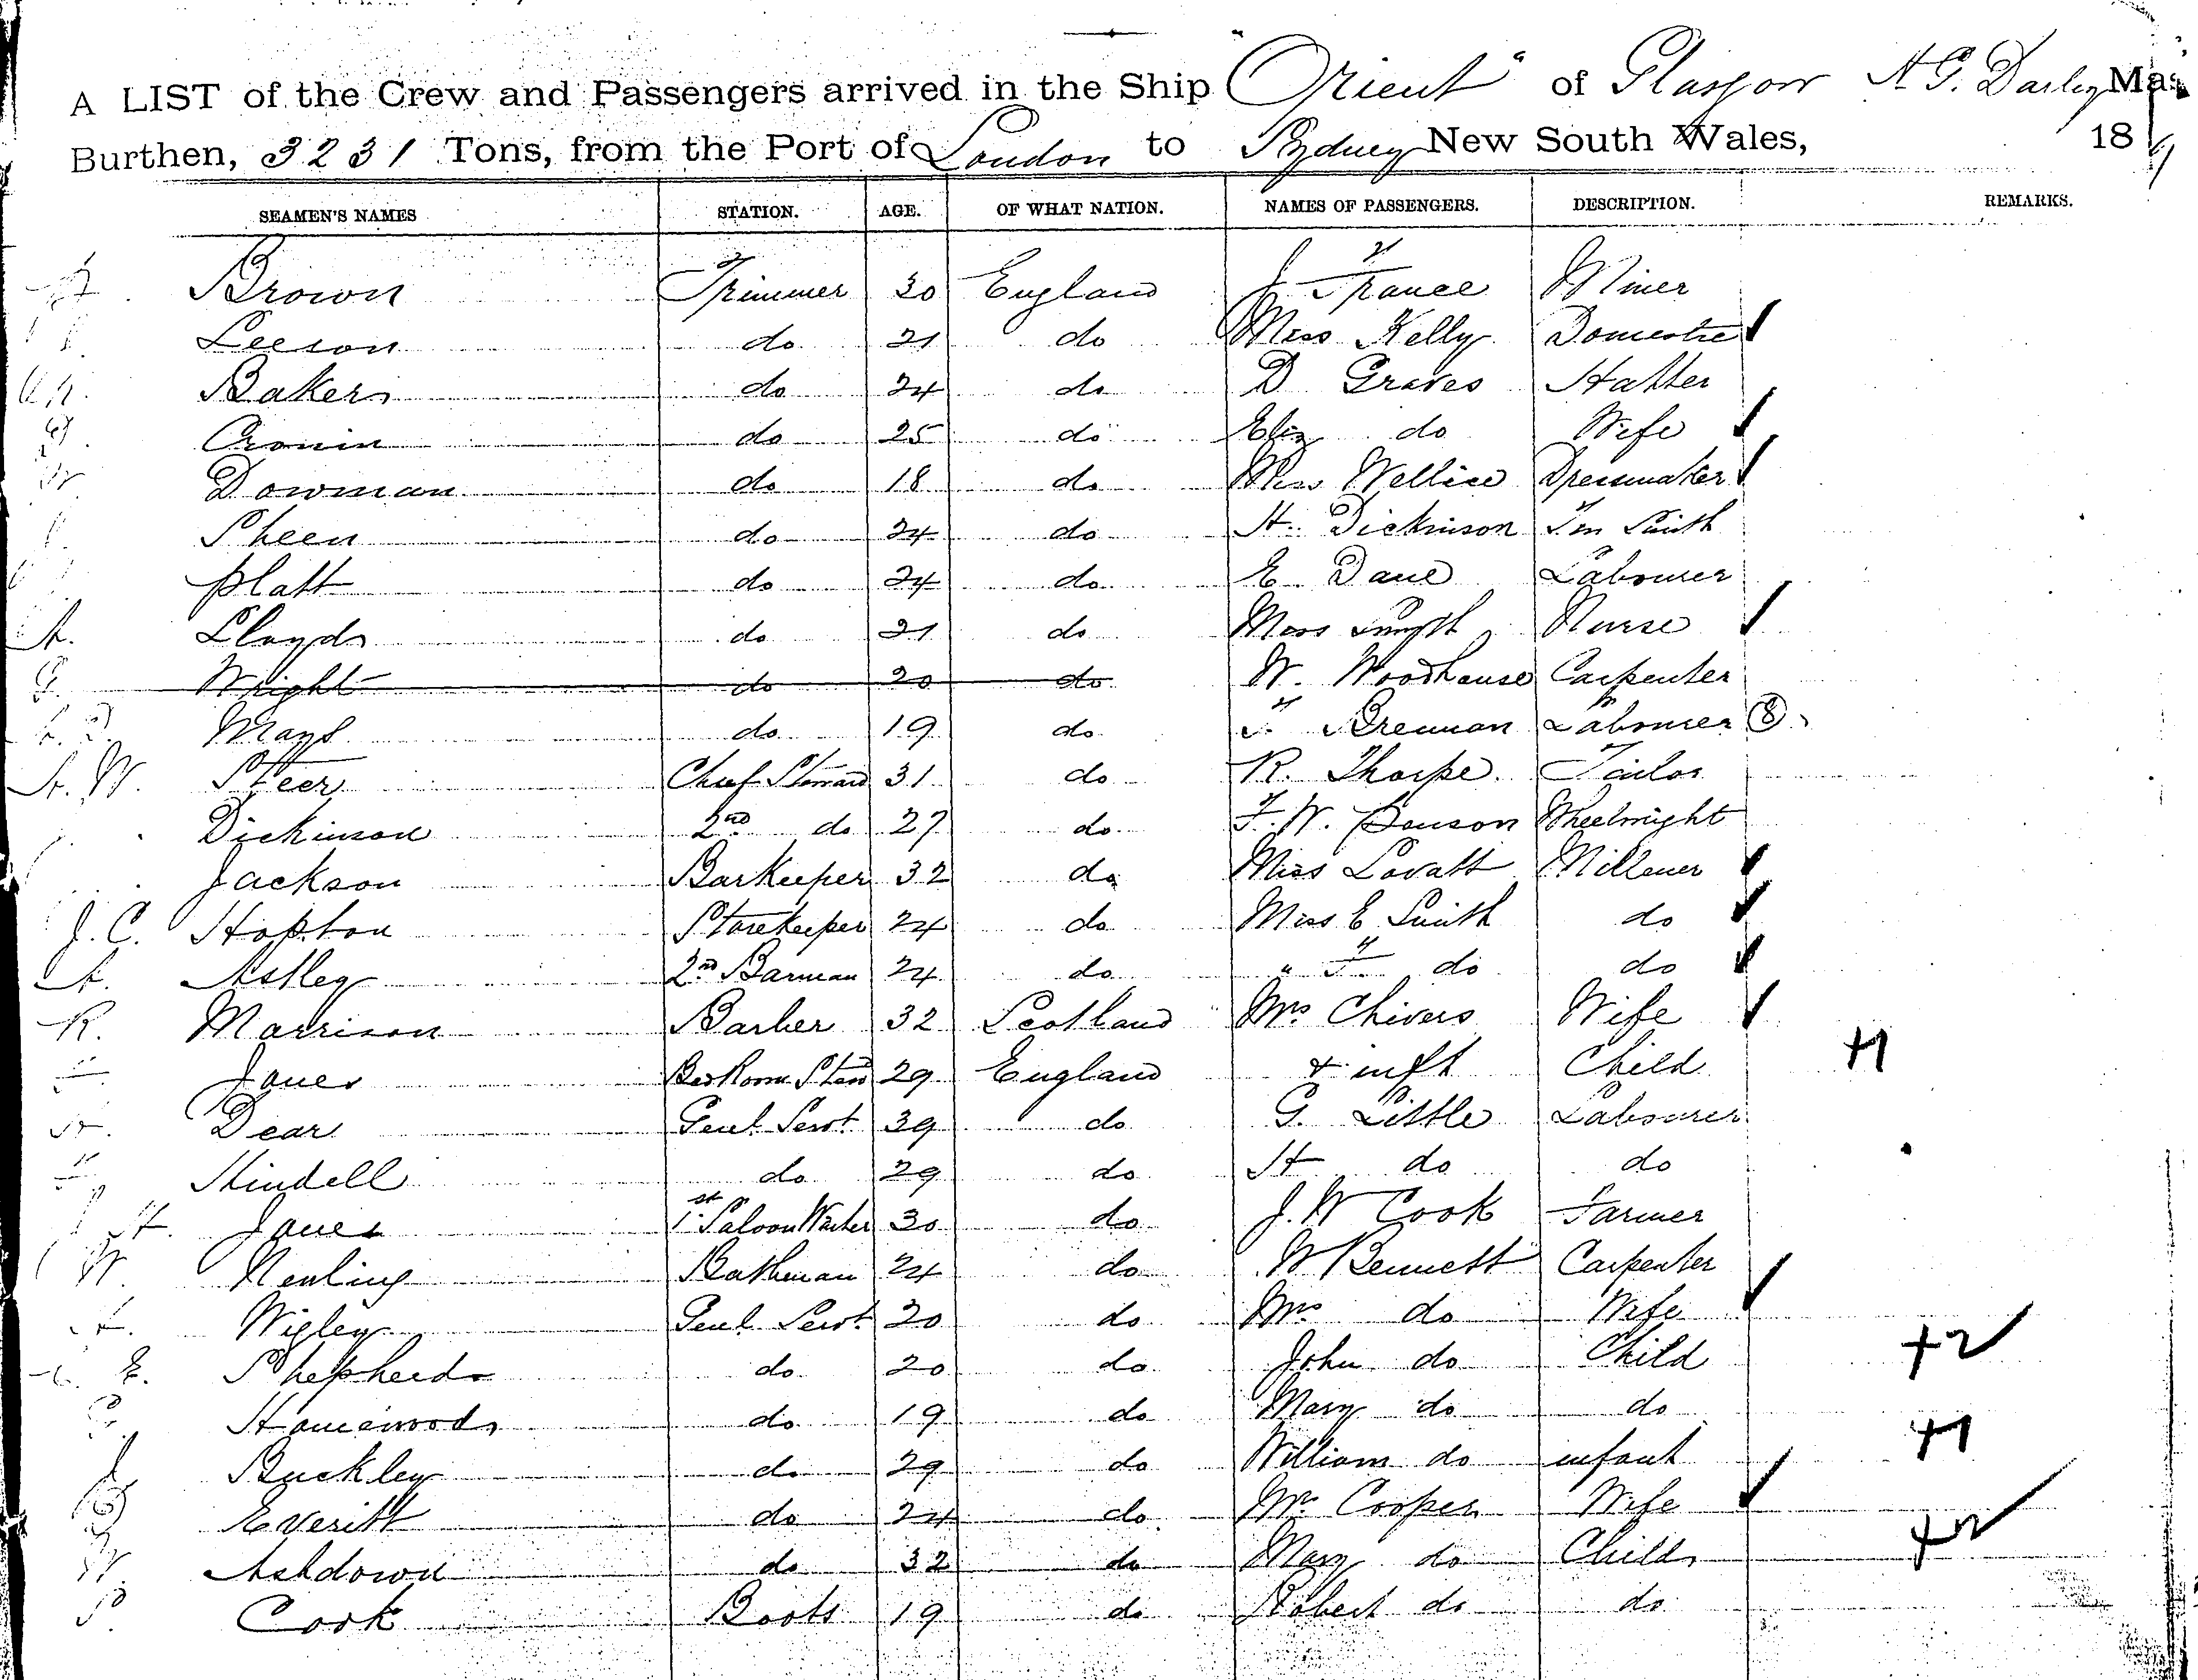 A LIST of the Crew and Passengers arrived in the Ship "Orient" of Glasgow A G. Darley Mas
Burthen, 3231 Tons, from the Port of London to Sydney New South Wales, 18
SEAMEN'S NAMES STATION. AGE. OF WHAT NATION. NAMES OF PASSENGERS. DESCRIPTION. REMARKS.
Brown Trimmer 30 England J France Miner
Leeson do 21 do Miss Kelly Domestic
Baker do 24 do D Graves Hatter
Cronin do 25 do Eliz do Wife
Dowman do 18 do Miss Wellice Dressmaker
Sheen do 24 do H. Dickinson Tin Smith
Platt do 24 do E Dane Labourer
A. Lloyd do 21 do Miss Nurse
G. Wright do 20 do W. Woodhouse Carpenter
Mays do 19 do T Brennan Labourer 8
A. W. Steer Chief Steward 31 do R. Thorpe Tailor
Dickinson 2nd do 27 do F. W. Benson Wheelwright
Jackson Barkeeper 32 do Miss Lovatt Millener
J. C. Hopton Storekeeper 24 do Miss E Smith do
A. Astley 2nd Barman 24 do " F. do do
R. Marrison Barber 32 Scotland Mrs Chivers Wife
Jones Bedroom Stewd 29 England + inft Child +1
Dear Genl. Servt. 39 do G. Little Labourer
Hindell do 29 do H do do
H. Jones 1st Saloon Waiter 30 do J. W Cook Farmer
W. Newling Bathman 24 do W Bennett Carpenter
Wigley Genl. Servt. 20 do Mrs do Wife
E. Shepherd do 20 do John do Child +2
Homewood do 19 do Mary do do
Buckley do 29 do William do infant +1
Everitt do 24 do Mrs Cooper Wife
W. Ashdown do 32 do Mary do Child +2
Cook Boots 19 do Robert do do